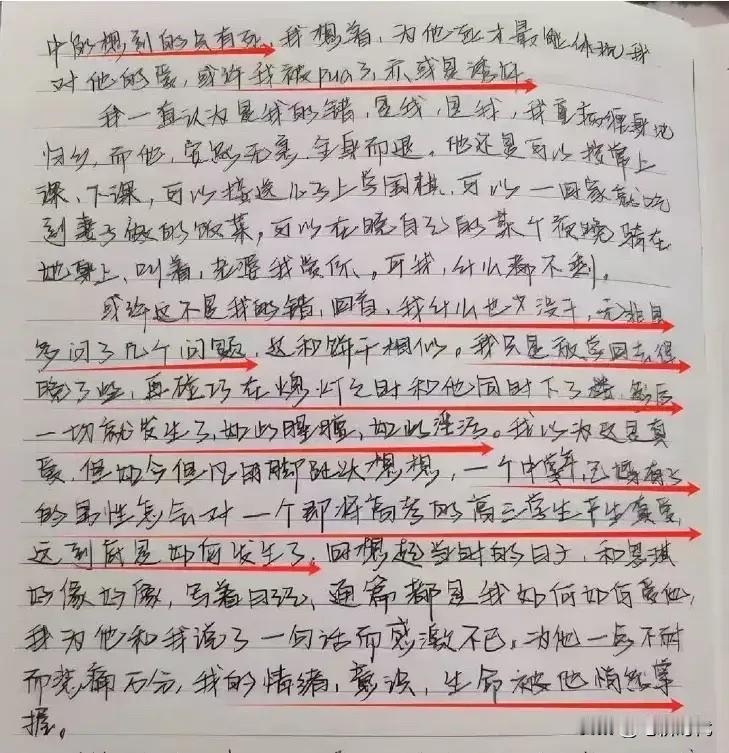 中的想到的只有死，我想着，为他死才最能体现我
对他的爱，或许我被pua了，亦或是诱奸。
我一直认为是我的错，是我，是我，我重病缠身地
归乡，而他，安然无恙，全身而退。他还是可以按常上
课、下课，可以接送儿子上学围棋，可以一回家就吃
到妻子做的饭菜，可以在晚自己的某个夜晚骑在
她身上、叫着，老婆我爱你、，可我，什么都不剩。
或许这不是我的错，回看，我什么也没干，无非是
多问了几个问题，这和饼干相似。我只是放学回去得
晚了些，再碰巧在熄灯之时和他同时下了楼，然后
一切就发生了，如此腥膻，如此淫浸。我以为这是真
爱，但如今但凡用脚趾头想想，一个中年，已婚有子
的男性怎会对一个即将高考的高三学生产生真爱，
这到底是如何发生了，回想起当时的日子，和思琪
好像好像，写着日记，通篇都是我如何如何爱他，
我为他和我说了一句话而感激不已，为他一点不耐
而悲痛万分，我的情绪，意识，生命被他悄然掌
握。